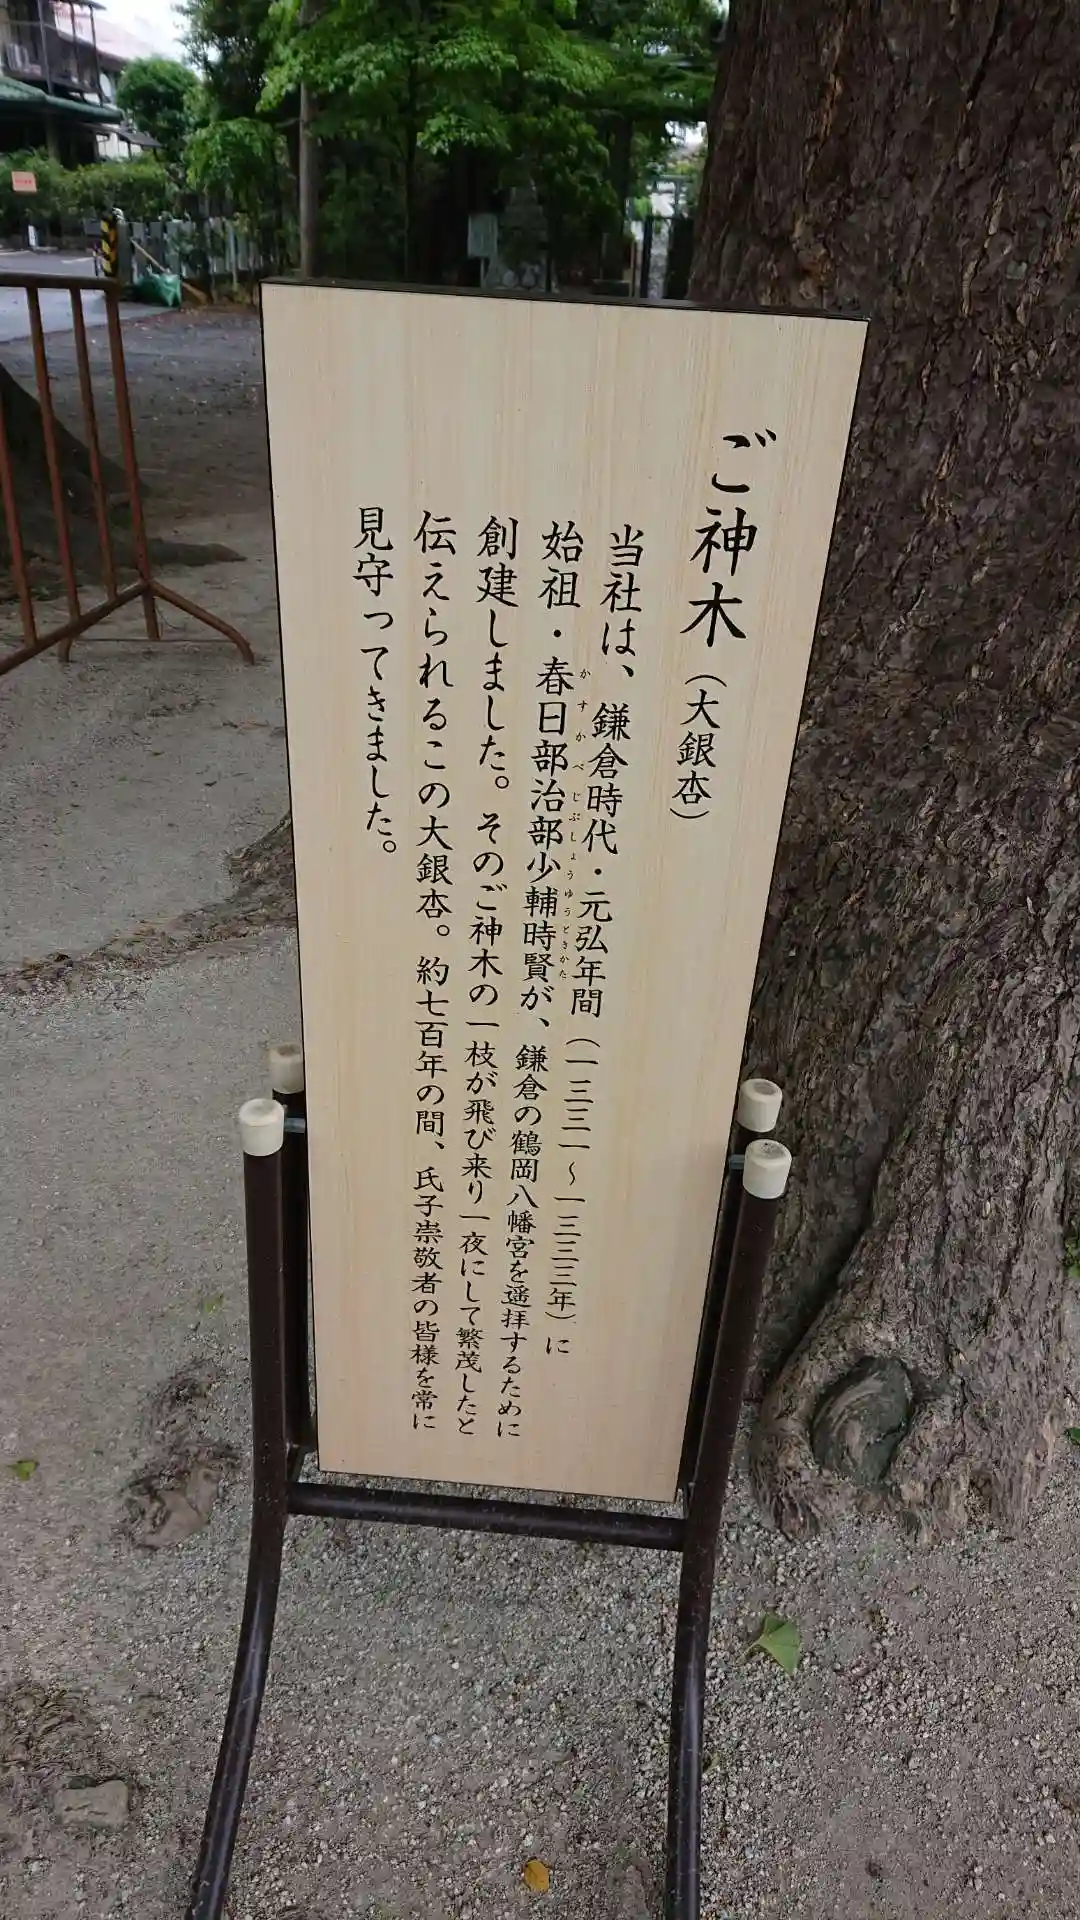 ご神木（大銀杏）
当社は、鎌倉時代・元弘年間（一三三一～一三三三年）に
かすかべじぶしょうゆうときかた
始祖・春日部治部少輔時賢が、鎌倉の鶴岡八幡宮を遥拝するために
創建しました。そのご神木の一枝が飛び来り一夜にして繁茂したと
伝えられるこの大銀杏。約七百年の間、氏子崇敬者の皆様を常に
見守ってきました。